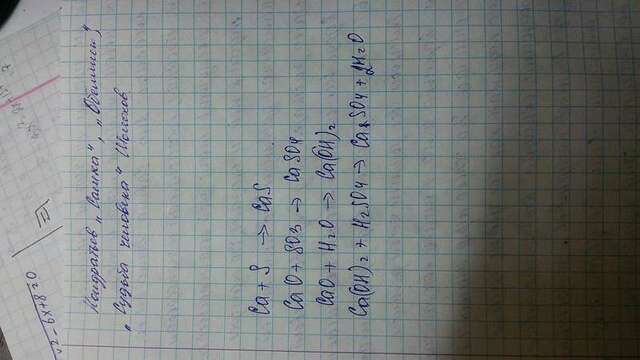 Кондратьев "Сашка", "Обелиск",
"Судьба человека" Шолохов
Ca + S → CaS
CaO + SO3 → CaSO4
CaO + H2O → Ca(OH)2
Ca(OH)2 + H2SO4 → CaSO4 + 2H2O
- 6x + 8 = 0